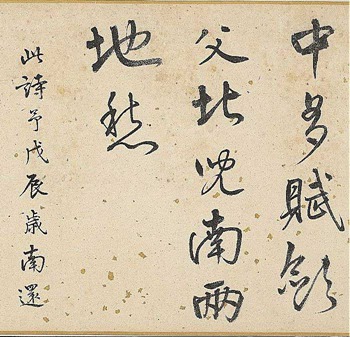 中多賦斂
父北兒南兩
地愁
此詩予戊辰歲南還